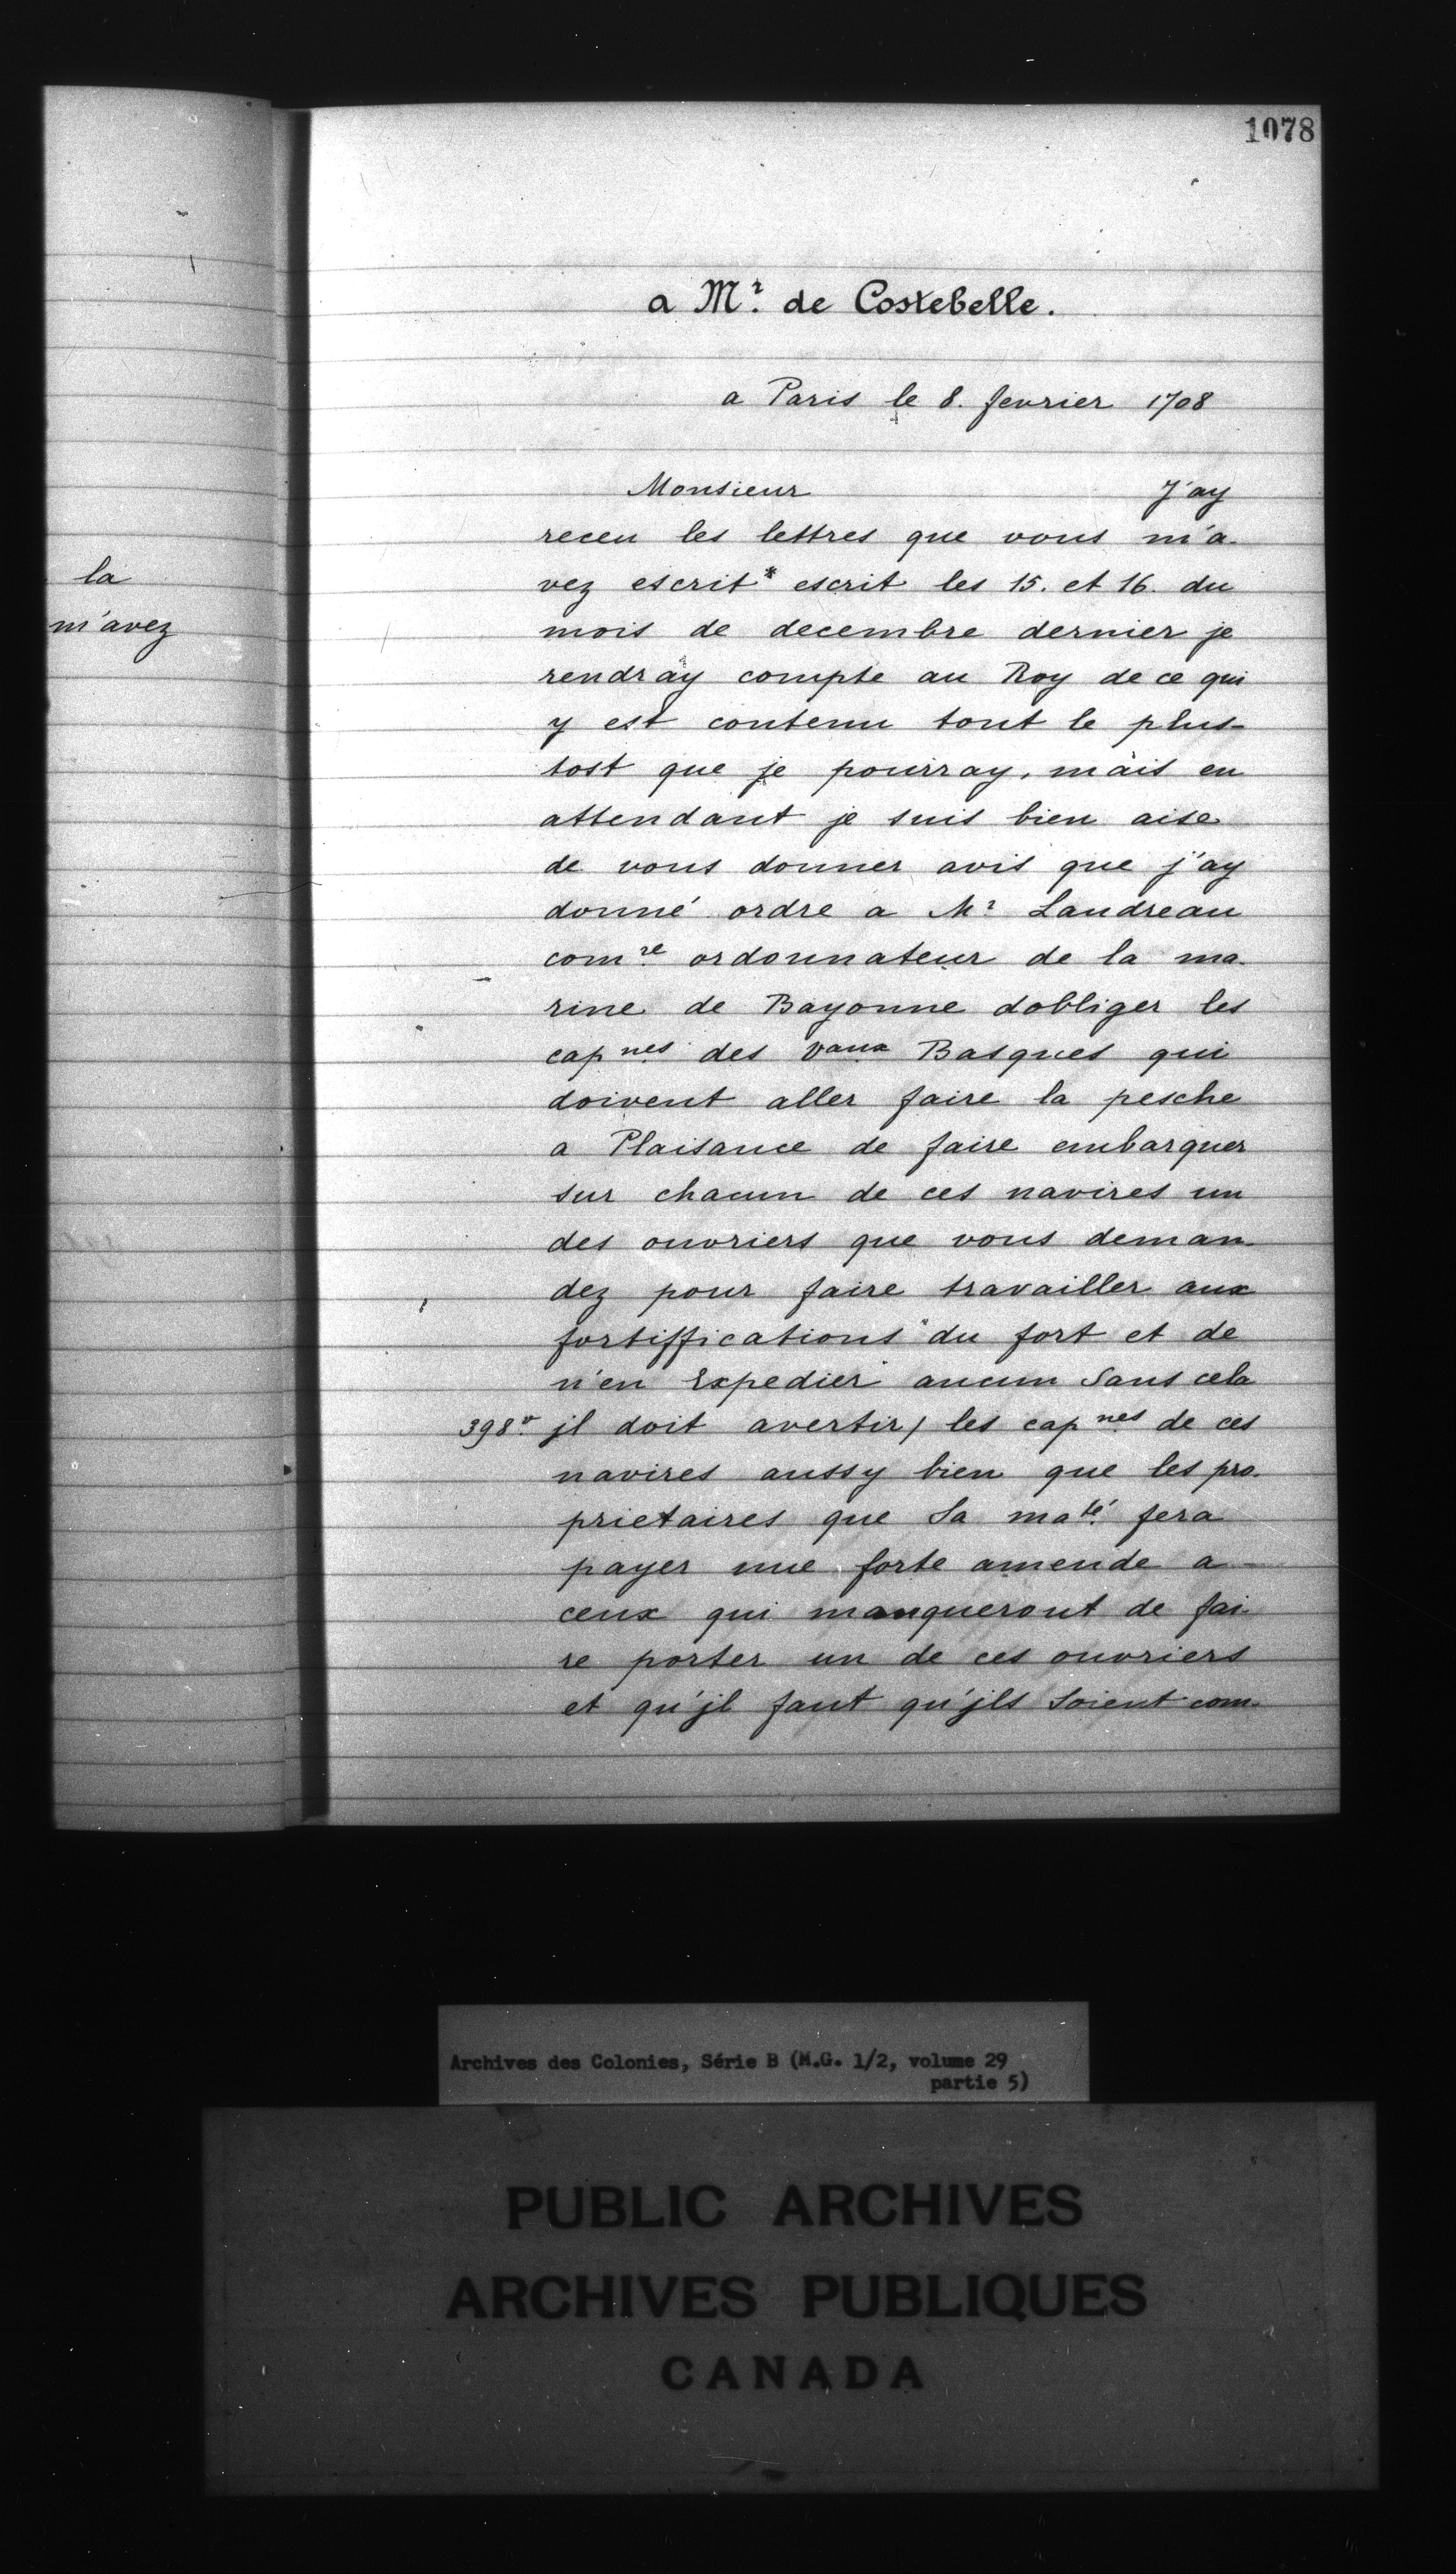 1078
la
m'avez
a Mr. de Costebelle.
a Paris le 8. fevrier 1708
Monsieur J'ay
receu les lettres que vous m'a-
vez escrit* escrit les 15. et 16. du
mois de decembre dernier je
rendray compte au Roy de ce qui
y est contenu tout le plus-
tost que je pourray, mais en
attendant je suis bien aise
de vous donner avis que j'ay
donné ordre a Mr Landreau
comre ordonnateur de la ma-
rine de Bayonne dobliger les
capnes des Vaux Basques qui
doivent aller faire la pesche
a Plaisance de faire embarquer
sur chacun de ces navires un
des ouvriers que vous deman-
dez pour faire travailler aux
fortiffications du fort et de
n'en Expedier aucun Sans cela
398v. jl doit avertir / les capnes de ces
navires aussy bien que les pro-
prietaires que Sa maté fera
payer une forte amende a
ceux qui manqueront de fai-
re porter un de ces ouvriers
et qu'jl faut qu'jls Soient com-
Archives des Colonies, Série B (M.G. 1/2, volume 29
partie 5)
PUBLIC ARCHIVES
ARCHIVES PUBLIQUES
CANADA